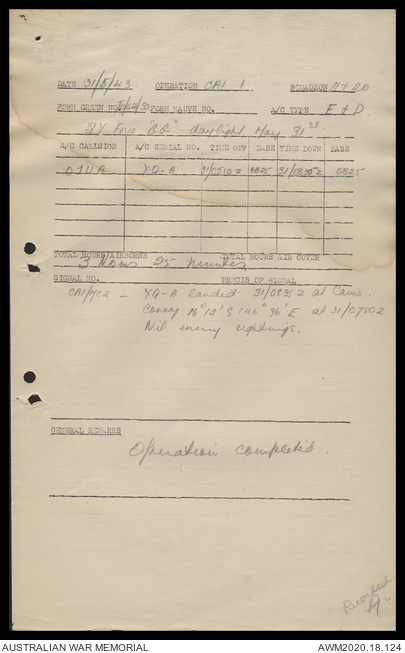 DATE 31/5/43 OPERATION CAI 1 SQUADRON 11 & 20
FORM GREEN NO. FORM MAUVE NO. A/C TYPE E & D
daylight May 31st
A/C CALLSIGN A/C SERIAL NO. TIME OFF BASE TIME DOWN BASE
YQ-A 31/0510Z 31/0835Z 0825
TOTAL HOURS AIRBORNE TOTAL HOURS AIR COVER
3 Hours 25 Minutes
SIGNAL NO. PRECIS OF SIGNAL
– YQ-A landed 31/0835Z at Cairns.
Convoy 16° 12' S 146° 36' E at 31/0750Z
Nil enemy sightings.
GENERAL REMARKS
Operation completed.
Recorded
AUSTRALIAN WAR MEMORIAL AWM2020.18.124